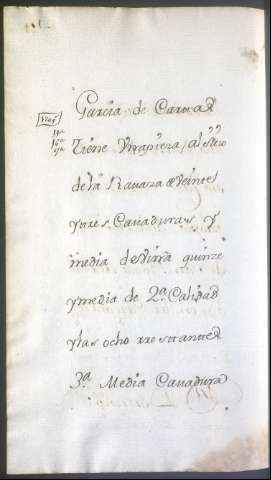 Garcia de Carvard
Tiene Vnapieza, al sitio
de la Ravaza de Veinte
ytres Cavaduras y
media deviña quinze
ymedia de 2ª Calidad
ylas ocho rrestantes
3ª Media Cavadura